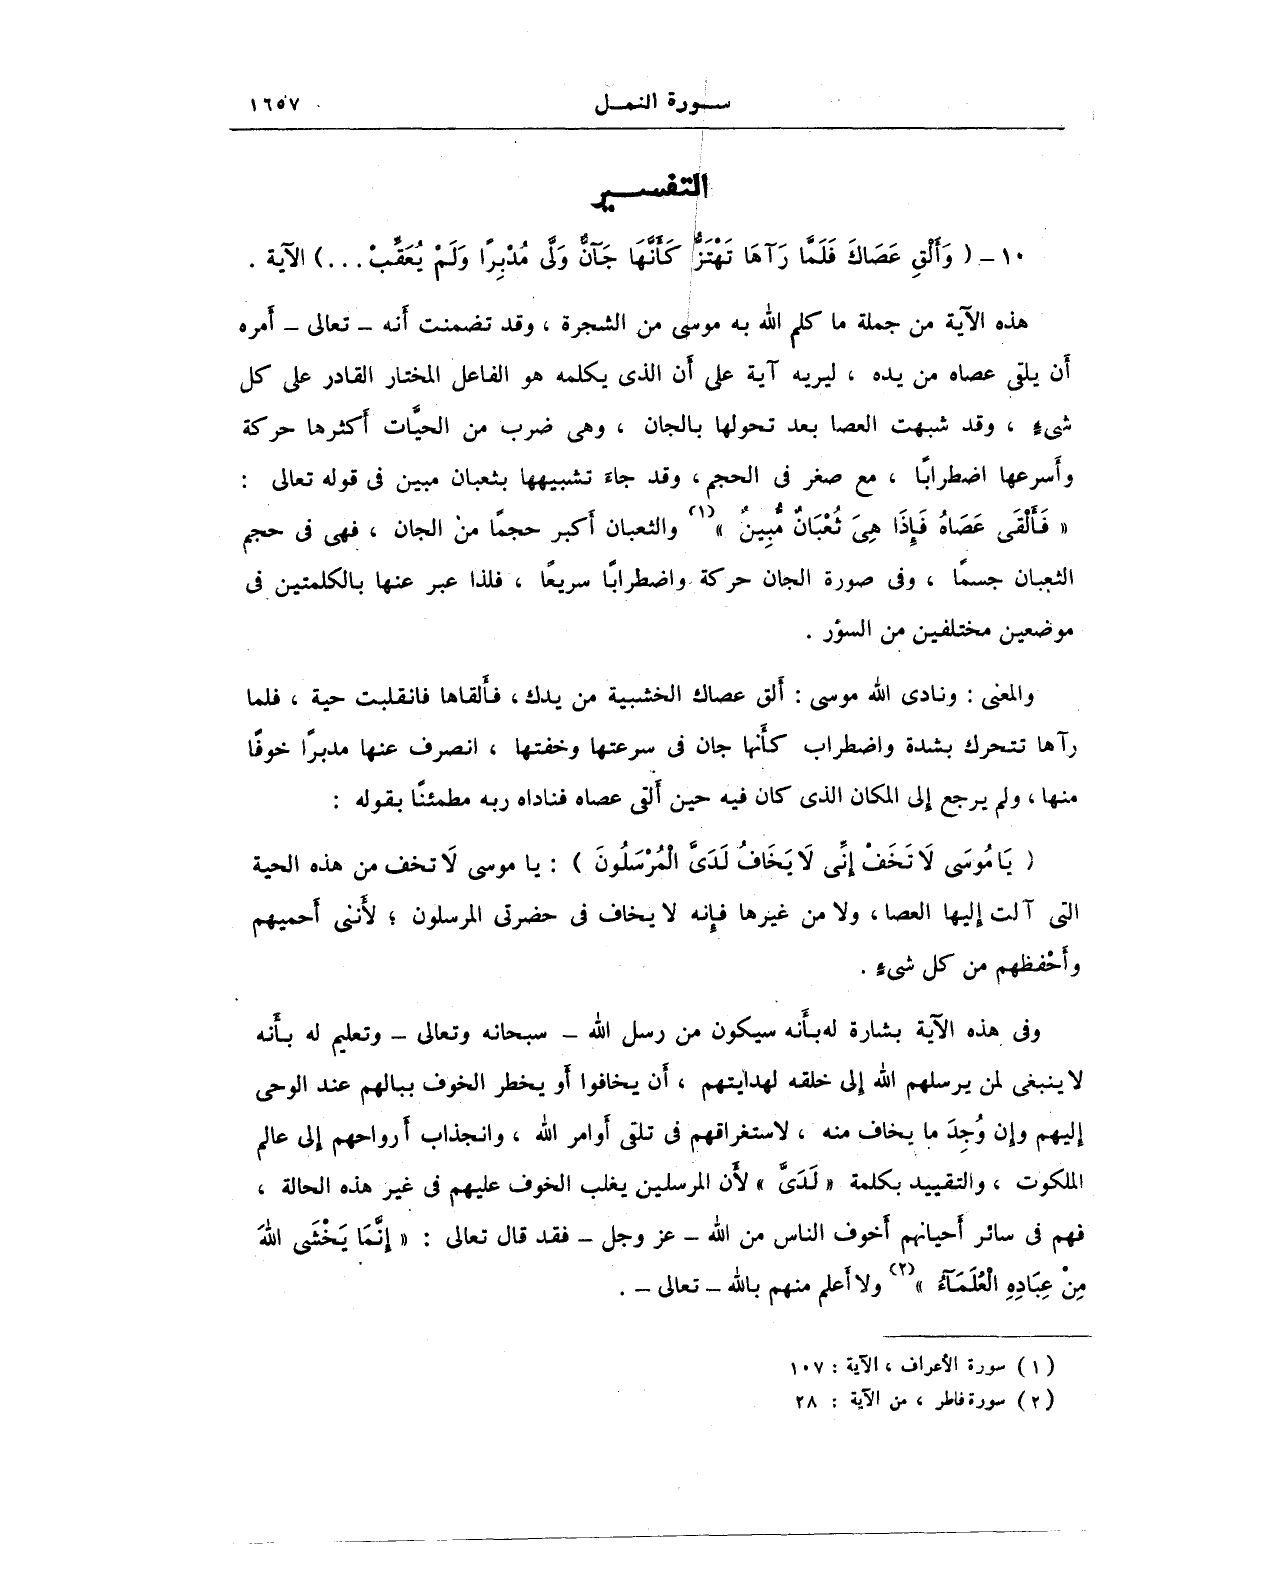 سورة النمل ١٦٥٧
التفسير
١٠ـ ( وَأَلْقِ عَصَاكَ فَلَمَّا رَآهَا تَهْتَزُّ كَأَنَّهَا جَآنٌّ وَلَّى مُدْبِرًا وَلَمْ يُعَقِّبْ . . . ) الآية .
هذه الآية من جملة ما كلم الله به موسى من الشجرة ، وقد تضمنت أنه ـ تعالى ـ أمره
أن يلقى عصاه من يده ، ليريه آية على أن الذى يكلمه هو الفاعل المختار القادر على كل
شىءٍ ، وقد شبهت العصا بعد تحولها بالجان ، وهى ضرب من الحيَّات أكثرها حركة
وأسرعها اضطرابًا ، مع صغر فى الحجم ، وقد جاءَ تشبيهها بثعبان مبين فى قوله تعالى :
« فَأَلْقَى عَصَاهُ فَإِذَا هِىَ ثُعْبَانٌ مُّبِينٌ » (١) والثعبان أكبر حجمًا من الجان ، فهى فى حجم
الثعبان جسمًا ، وفى صورة الجان حركة واضطرابًا سريعًا ، فلذا عبر عنها بالكلمتين فى
موضعين مختلفين من السوَر .
والمعنى : ونادى الله موسى : ألق عصاك الخشبية من يدك ، فألقاها فانقلبت حية ، فلما
رآها تتحرك بشدة واضطراب كأنها جان فى سرعتها وخفتها ، انصرف عنها مدبرًا خوفًا
منها ، ولم يرجع إلى المكان الذى كان فيه حين ألقى عصاه فناداه ربه مطمئنًا بقوله :
( يَا مُوسَى لَا تَخَفْ إِنِّى لَا يَخَافُ لَدَىَّ الْمُرْسَلُونَ ) : يا موسى لَا تخف من هذه الحية
التى آلت إليها العصا ، ولا من غيرها فإنه لا يخاف فى حضرتى المرسلون ؛ لأننى أحميهم
وأحْفظهم من كل شىءٍ .
وفى هذه الآية بشارة له بأنه سيكون من رسل الله ـ سبحانه وتعالى ـ وتعليم له بأنه
لا ينبغى لمن يرسلهم الله إلى خلقه لهدايتهم ، أن يخافوا أو يخطر الخوف ببالهم عند الوحى
إليهم وإن وُجِدَ ما يخاف منه ، لاستغراقهم فى تلقى أوامر الله ، وانجذاب أرواحهم إلى عالم
الملكوت ، والتقييد بكلمة « لَدَىَّ » لأن المرسلين يغلب الخوف عليهم فى غير هذه الحالة ،
فهم فى سائر أحيانهم أخوف الناس من الله ـ عز وجل ـ فقد قال تعالى : « إِنَّمَا يَخْشَى اللهَ
مِنْ عِبَادِهِ الْعُلَمَآءُ » (٢) ولا أعلم منهم بالله ـ تعالى ـ .
(١) سورة الأعراف ، الآية : ١٠٧
(٢) سورة فاطر ، من الآية : ٢٨